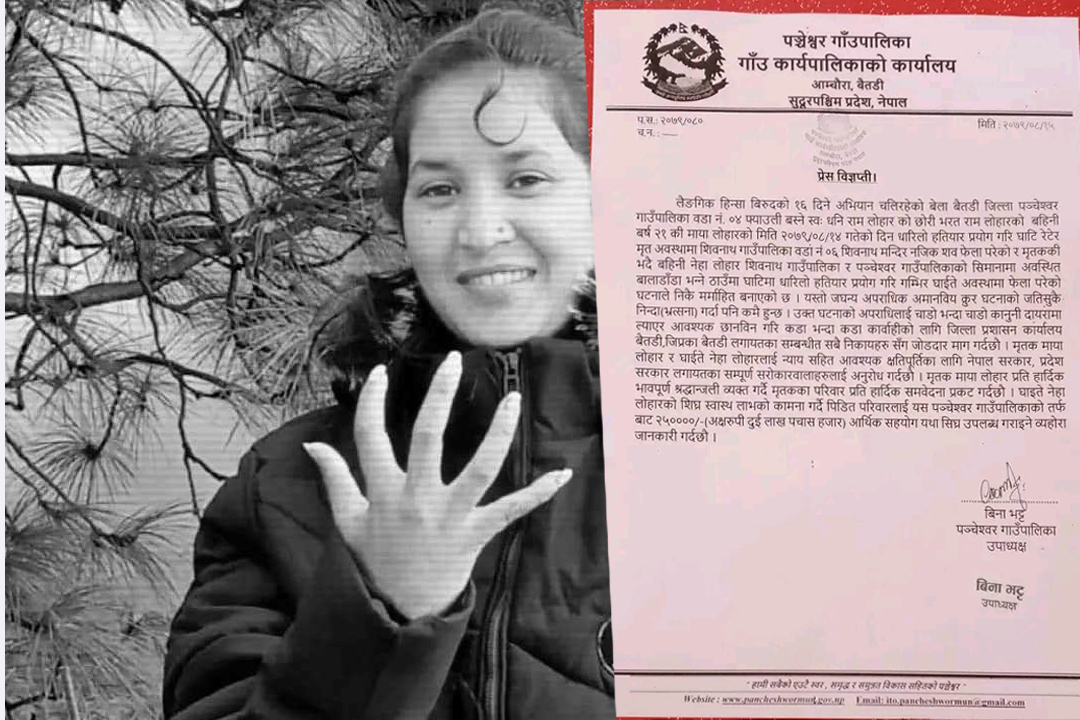 पञ्चेश्वर गाँउपालिका
गाँउ कार्यपालिकाको कार्यालय
आम्चौरा, बैतडी
सुदूरपश्चिम प्रदेश, नेपाल
प.स.: २०७९/०८०
च.न. : —
मिति : २०७९/०८/१५
प्रेस विज्ञप्ती।
लैङगिक हिन्सा बिरुदको १६ दिने अभियान चलिरहेको बेला बैतडी जिल्ला पञ्चेश्वर
गाउँपालिका वडा नं. ०४ फ्याउली बस्ने स्वः धनि राम लोहार को छोरी भरत राम लोहारको बहिनी
बर्ष २१ की माया लोहारको मिति २०७९/०८/१४ गतेको दिन धारिलो हतियार प्रयोग गरि घाटि रेटेर
मृत अवस्थामा शिवनाथ गाउँपालिका वडा नं ०६ शिवनाथ मन्दिर नजिक शव फेला परेको र मृतककी
भदै बहिनी नेहा लोहार शिवनाथ गाउँपालिका र पञ्चेश्वर गाउँपालिकाको सिमानामा अवस्थित
बालाडाँडा भन्ने ठाउँमा घाटिमा धारिलो हतियार प्रयोग गरि गम्भिर घाईते अवस्थामा फेला परेको
घटनाले निकै मर्माहित बनाएको छ । यस्तो जघन्य अपराधिक अमानविय क्रुर घटनाको जतिसुकै
निन्दा(भ्रत्सना) गर्दा पनि कमै हुन्छ । उक्त घटनाको अपराधिलाई चाडो भन्दा चाडो कानुनी दायरामा
ल्याएर आवश्यक छानविन गरि कडा भन्दा कडा कार्वाहीको लागि जिल्ला प्रशासन कार्यालय
बैतडी,जिप्रका बैतडी लगायतका सम्बन्धीत सबै निकायहरु सँग जोडदार माग गर्दछौ । मृतक माया
लोहार र घाईते नेहा लोहारलाई न्याय सहित आवश्यक क्षतिपूर्तिका लागि नेपाल सरकार, प्रदेश
सरकार लगायतका सम्पूर्ण सरोकारवालाहरुलाई अनुरोध गर्दछौ । मृतक माया लोहार प्रति हार्दिक
भावपूर्ण श्रद्धान्जली व्यक्त गर्दै मृतकका परिवार प्रति हार्दिक समवेदना प्रकट गर्दछौ । घाइते नेहा
लोहारको शिघ्र स्वास्थ लाभको कामना गर्दै पिडित परिवारलाई यस पञ्चेश्वर गाउँपालिकाको तर्फ
बाट २५००००/-(अक्षरुपी दुई लाख पचास हजार) आर्थिक सहयोग यथा सिघ्र उपलब्ध गराइने व्यहोरा
जानकारी गर्दछौ ।
बिना भट्ट
पञ्चेश्वर गाउँपालिका
उपाध्यक्ष
बिना भट्ट
उपाध्यक्ष
" हामी सबैको एउटै स्वर, समृद्ध र समुन्नत विकास सहितको पञ्चेश्वर "
Website : www.pancheshwormun.gov.np Email: ito.pancheshwormun@gmail.com